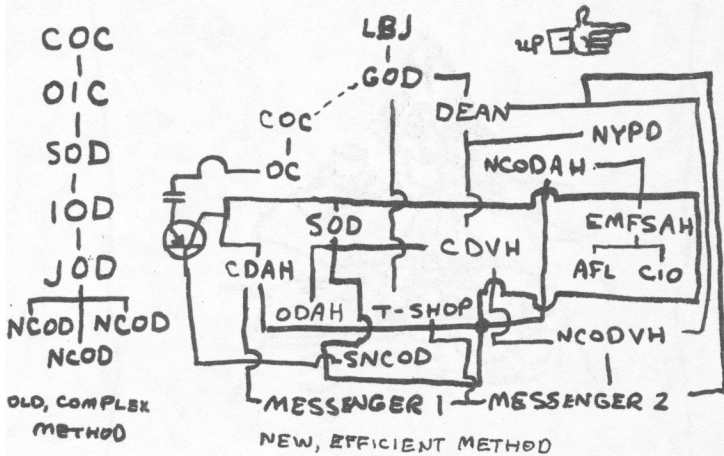 COC
OIC
SOD
IOD
JOD
NCOD NCOD
NCOD
OLD, COMPLEX
METHOD
LBJ
UP
GOD
DEAN
COC
NYPD
OC
NCODAH
SOD
EMFSAH
CDAH
CDVH
AFL CIO
ODAH
T-SHOP
SNCOD
NCODVH
MESSENGER 1
MESSENGER 2
NEW, EFFICIENT METHOD